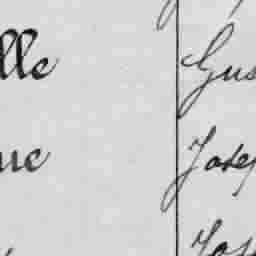 lle Gus
ue Josep
Jos